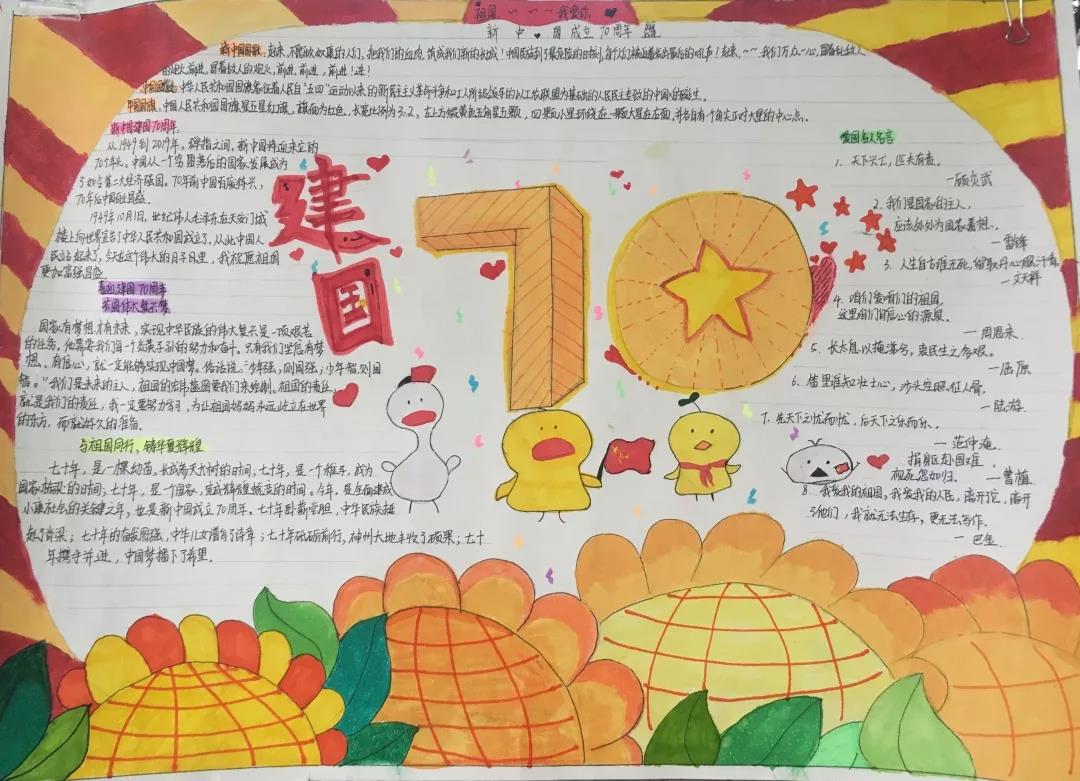 祖国~~~我爱你
新中国成立70周年
新中国国歌:起来,不愿做奴隶的人们,把我们的血肉,筑成我们新的长城!中国民族到了最危险的时候,每个人们被迫着发出最后的吼声!起来,~~我们万众一心,冒着敌人
的炮火前进,冒着敌人的炮火,前进,前进,前进!进!
中华人民共和国国徽
中国国旗:中国人民共和国国旗是五星红旗,旗面为红色,长宽比例为3:2,左上方缀黄色五角星五颗,四颗小星环绕在一颗大星右面,并各自有一个角尖正对大星的中心点。
新中国建国70周年
从1949到2019年,弹指之间,新中国将迎来它的
70华诞。中国从一个穷困落后的国家发展成为
了如今第二大经济强国。70年前中国百废待兴,
70年后中国旺盛昌盛。
1949年10月1日,世纪伟人毛泽东在天安门城
楼上向世界宣告了中华人民共和国成立了,从此中国人
民站起来了,今天这个伟大的日子日里,我祝愿祖国
更加富强昌盛。
喜迎建国70周年
共圆伟大复兴梦
国家有梦想,才有未来,实现中华民族的伟大复兴是一项艰苦
的任务。他需要我们每一个炎黄子孙的努力和奋斗。只有我们坚信有梦
想、有信心,就一定能够实现中国梦。俗话说:“少年强,则国强;少年智,则国
智。”我们是未来的主人,祖国的宏伟蓝图要我们来绘制。祖国的责任
就是我们的责任,我一定要努力学习,为让祖国妈妈永远屹立在世界
的东方,而做好久的准备。
与祖国同行、铸华夏辉煌
七十年,是一棵幼苗,长成参天大树的时间;七十年,是一个雏子,成为
国家栋梁的时间;七十年,是一个国家,完成辉煌蜕变的时间。今年,是全面建成
小康社会的关键之年,也是新中国成立70周年。七十年卧薪尝胆,中华民族挺
起了脊梁;七十年的奋发图强,中华儿女谱写了诗章;七十年砥砺前行,神州大地丰收了硕果;七十
年携手并进,中国梦播下了希望。
建
国
70
爱国名人名言
1、天下兴亡,匹夫有责。
—顾炎武
2、我们是国家的主人,
应该处处为国家着想。
—雷锋
3、人生自古谁无死,留取丹心照汗青。
—文天祥
4、咱们爱咱们的祖国,
这里咱们的信心的源泉。
—周恩来
5、长太息以掩涕兮,哀民生之多艰。
—屈原
6、笛里谁知壮士心,沙头空照征人骨。
—陆游
7、先天下之忧而忧,后天下之乐而乐。
—范仲淹
捐躯赴国难,
视死忽如归。
—曹植
8、我爱我的祖国,我爱我的人民,离开它,离开
了他们,我就无法生存,更无法写作。
—巴金